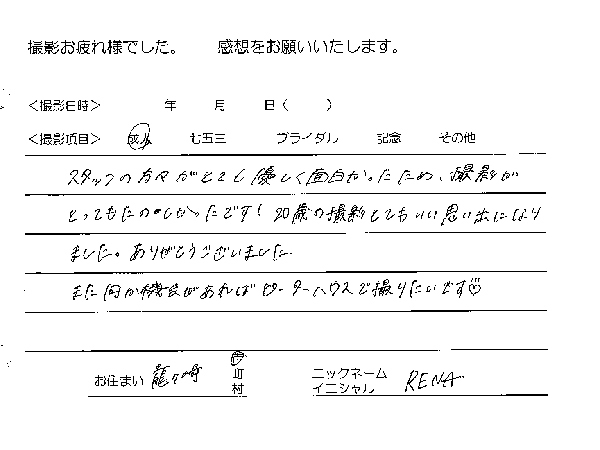 撮影お疲れ様でした。 感想をお願いいたします。
<撮影日時> 年 月 日( )
<撮影項目> 成人 七五三 ブライダル 記念 その他
スタッフの方々がとても優しく面白かったため、撮影が
とってもたのしかったです! 20歳の撮影とてもいい思い出になり
ました。ありがとうございました
また何か機会があればピーターハウスで撮りたいです
お住まい 龍ヶ崎 市町村 ニックネーム イニシャル RENA